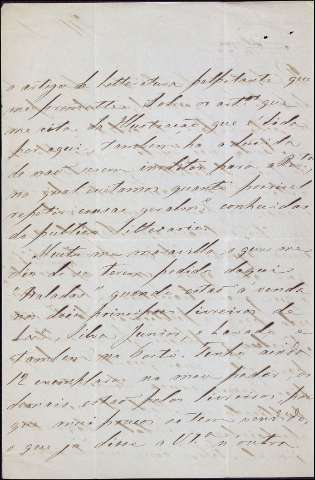 o artigo de litteratura palpitante que
me prometteu. Sobre os artos que
me cita da Illustração, que é lida
por aqui, tambem ha a duvida
de não serem ineditos para a
no qual evitamos quanto possivel
repetir cousas geralmte conhecidas
do publico litterario.
Muito me maravilha o que me
diz de se terem pedido daqui
"Baladas" quando estão á venda
nos dois principaes livreiros de
Lxa, Silva Junior, e Lavado e
tambem no Porto. Tenho ainda
12 exemplares no meu poder, os
demais estão pelos livreiros, por
que mui poucos se tem vendido,
o que ja disse a V. Exa n'outra